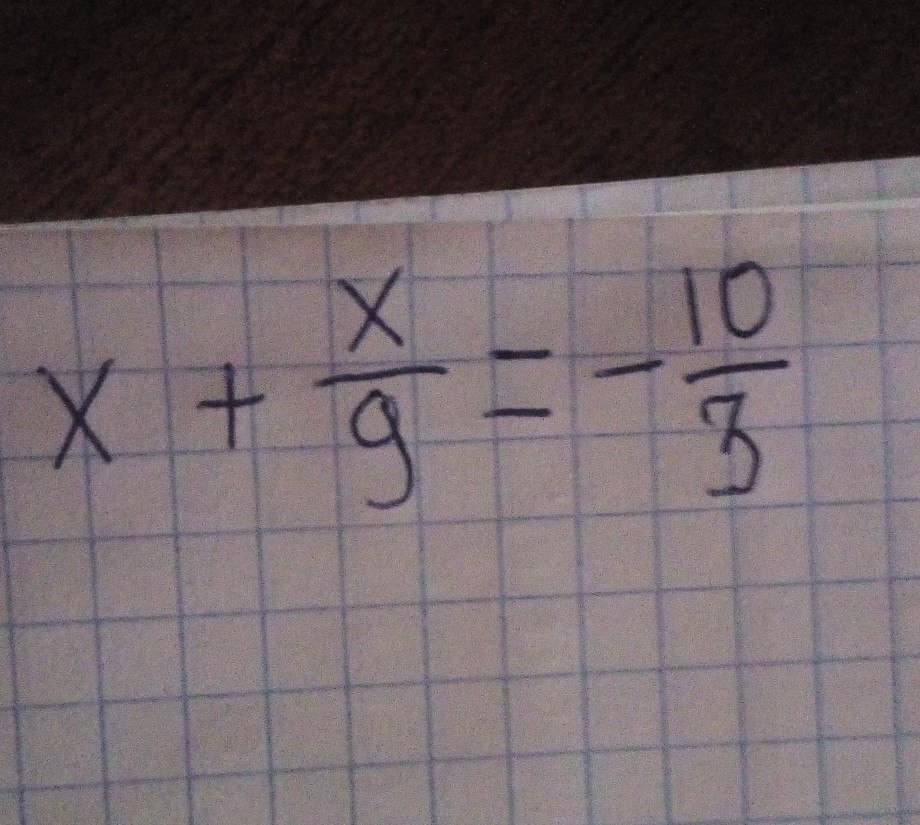 x + x/9 = - 10/3